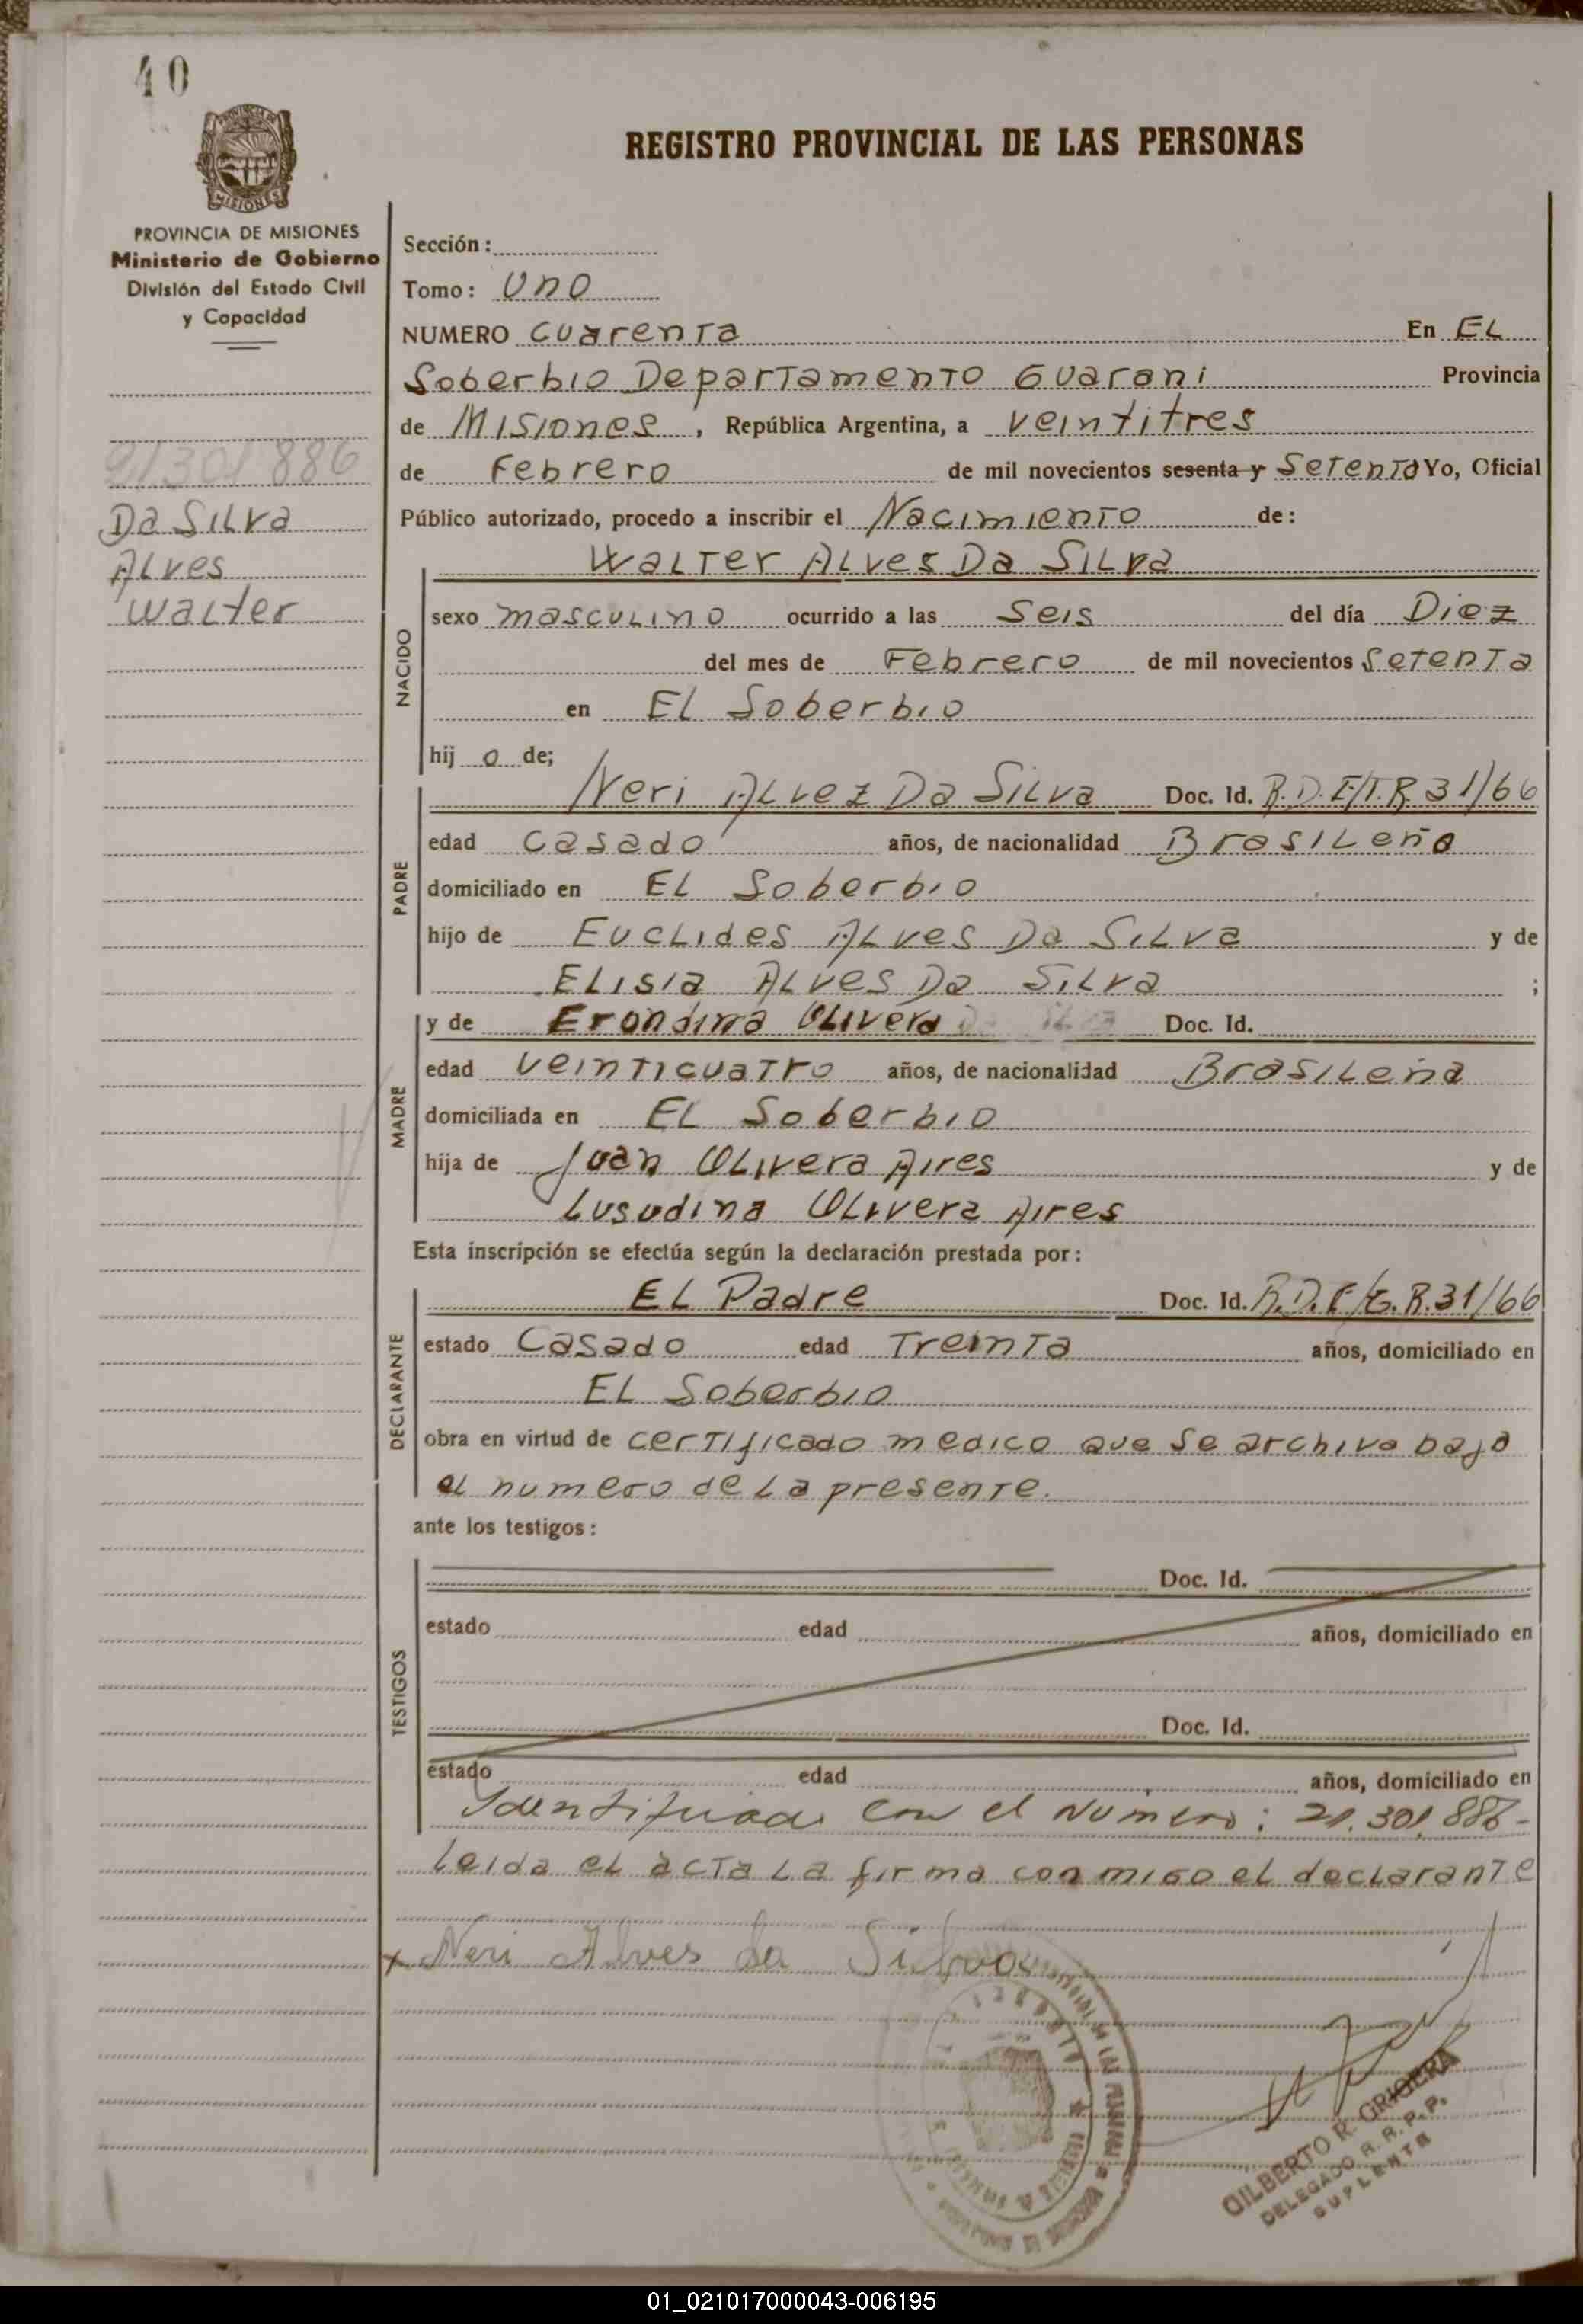 40
PROVINCIA DE MISIONES
Ministerio de Gobierno
División del Estado Civil
y Capacidad
Da Silva
Alves
Walter
REGISTRO PROVINCIAL DE LAS PERSONAS
Sección:
Tomo: Uno
NUMERO Cuarenta En El
Soberbio Departamento Guarani Provincia
de Misiones, República Argentina, a veintitres
de Febrero de mil novecientos sesenta y Setenta Yo, Oficial
Público autorizado, procedo a inscribir el Nacimiento de:
Walter Alves Da Silva
NACIDO
sexo masculino ocurrido a las Seis del día Diez
del mes de Febrero de mil novecientos Setenta
en El Soberbio
hij o de;
PADRE
Neri Alvez Da Silva Doc. Id. R.D.E/T.R. 31/66
edad Casado años, de nacionalidad Brasileño
domiciliado en El Soberbio
hijo de Euclides Alves Da Silva y de
Elisia Alves Da Silva ;
MADRE
y de Erondina Olivera Doc. Id.
edad veinticuatro años, de nacionalidad Brasileña
domiciliada en El Soberbio
hija de Juan Olivera Aires y de
Lusudina Olivera Aires
Esta inscripción se efectúa según la declaración prestada por:
DECLARANTE
El Padre Doc. Id. R.D.E/G.R. 31/66
estado Casado edad Treinta años, domiciliado en
El Soberbio
obra en virtud de certificado medico que se archiva bajo
el numero de la presente.
ante los testigos:
TESTIGOS
Doc. Id.
estado edad años, domiciliado en
Doc. Id.
estado edad años, domiciliado en
Identificado con el Número: 21.301.886-
leida el acta la firma conmigo el declarante
x Neri Alves da Silva
GILBERTO R. GRIGERA
DELEGADO R. R. P. P.
SUPLENTE
01_021017000043-006195